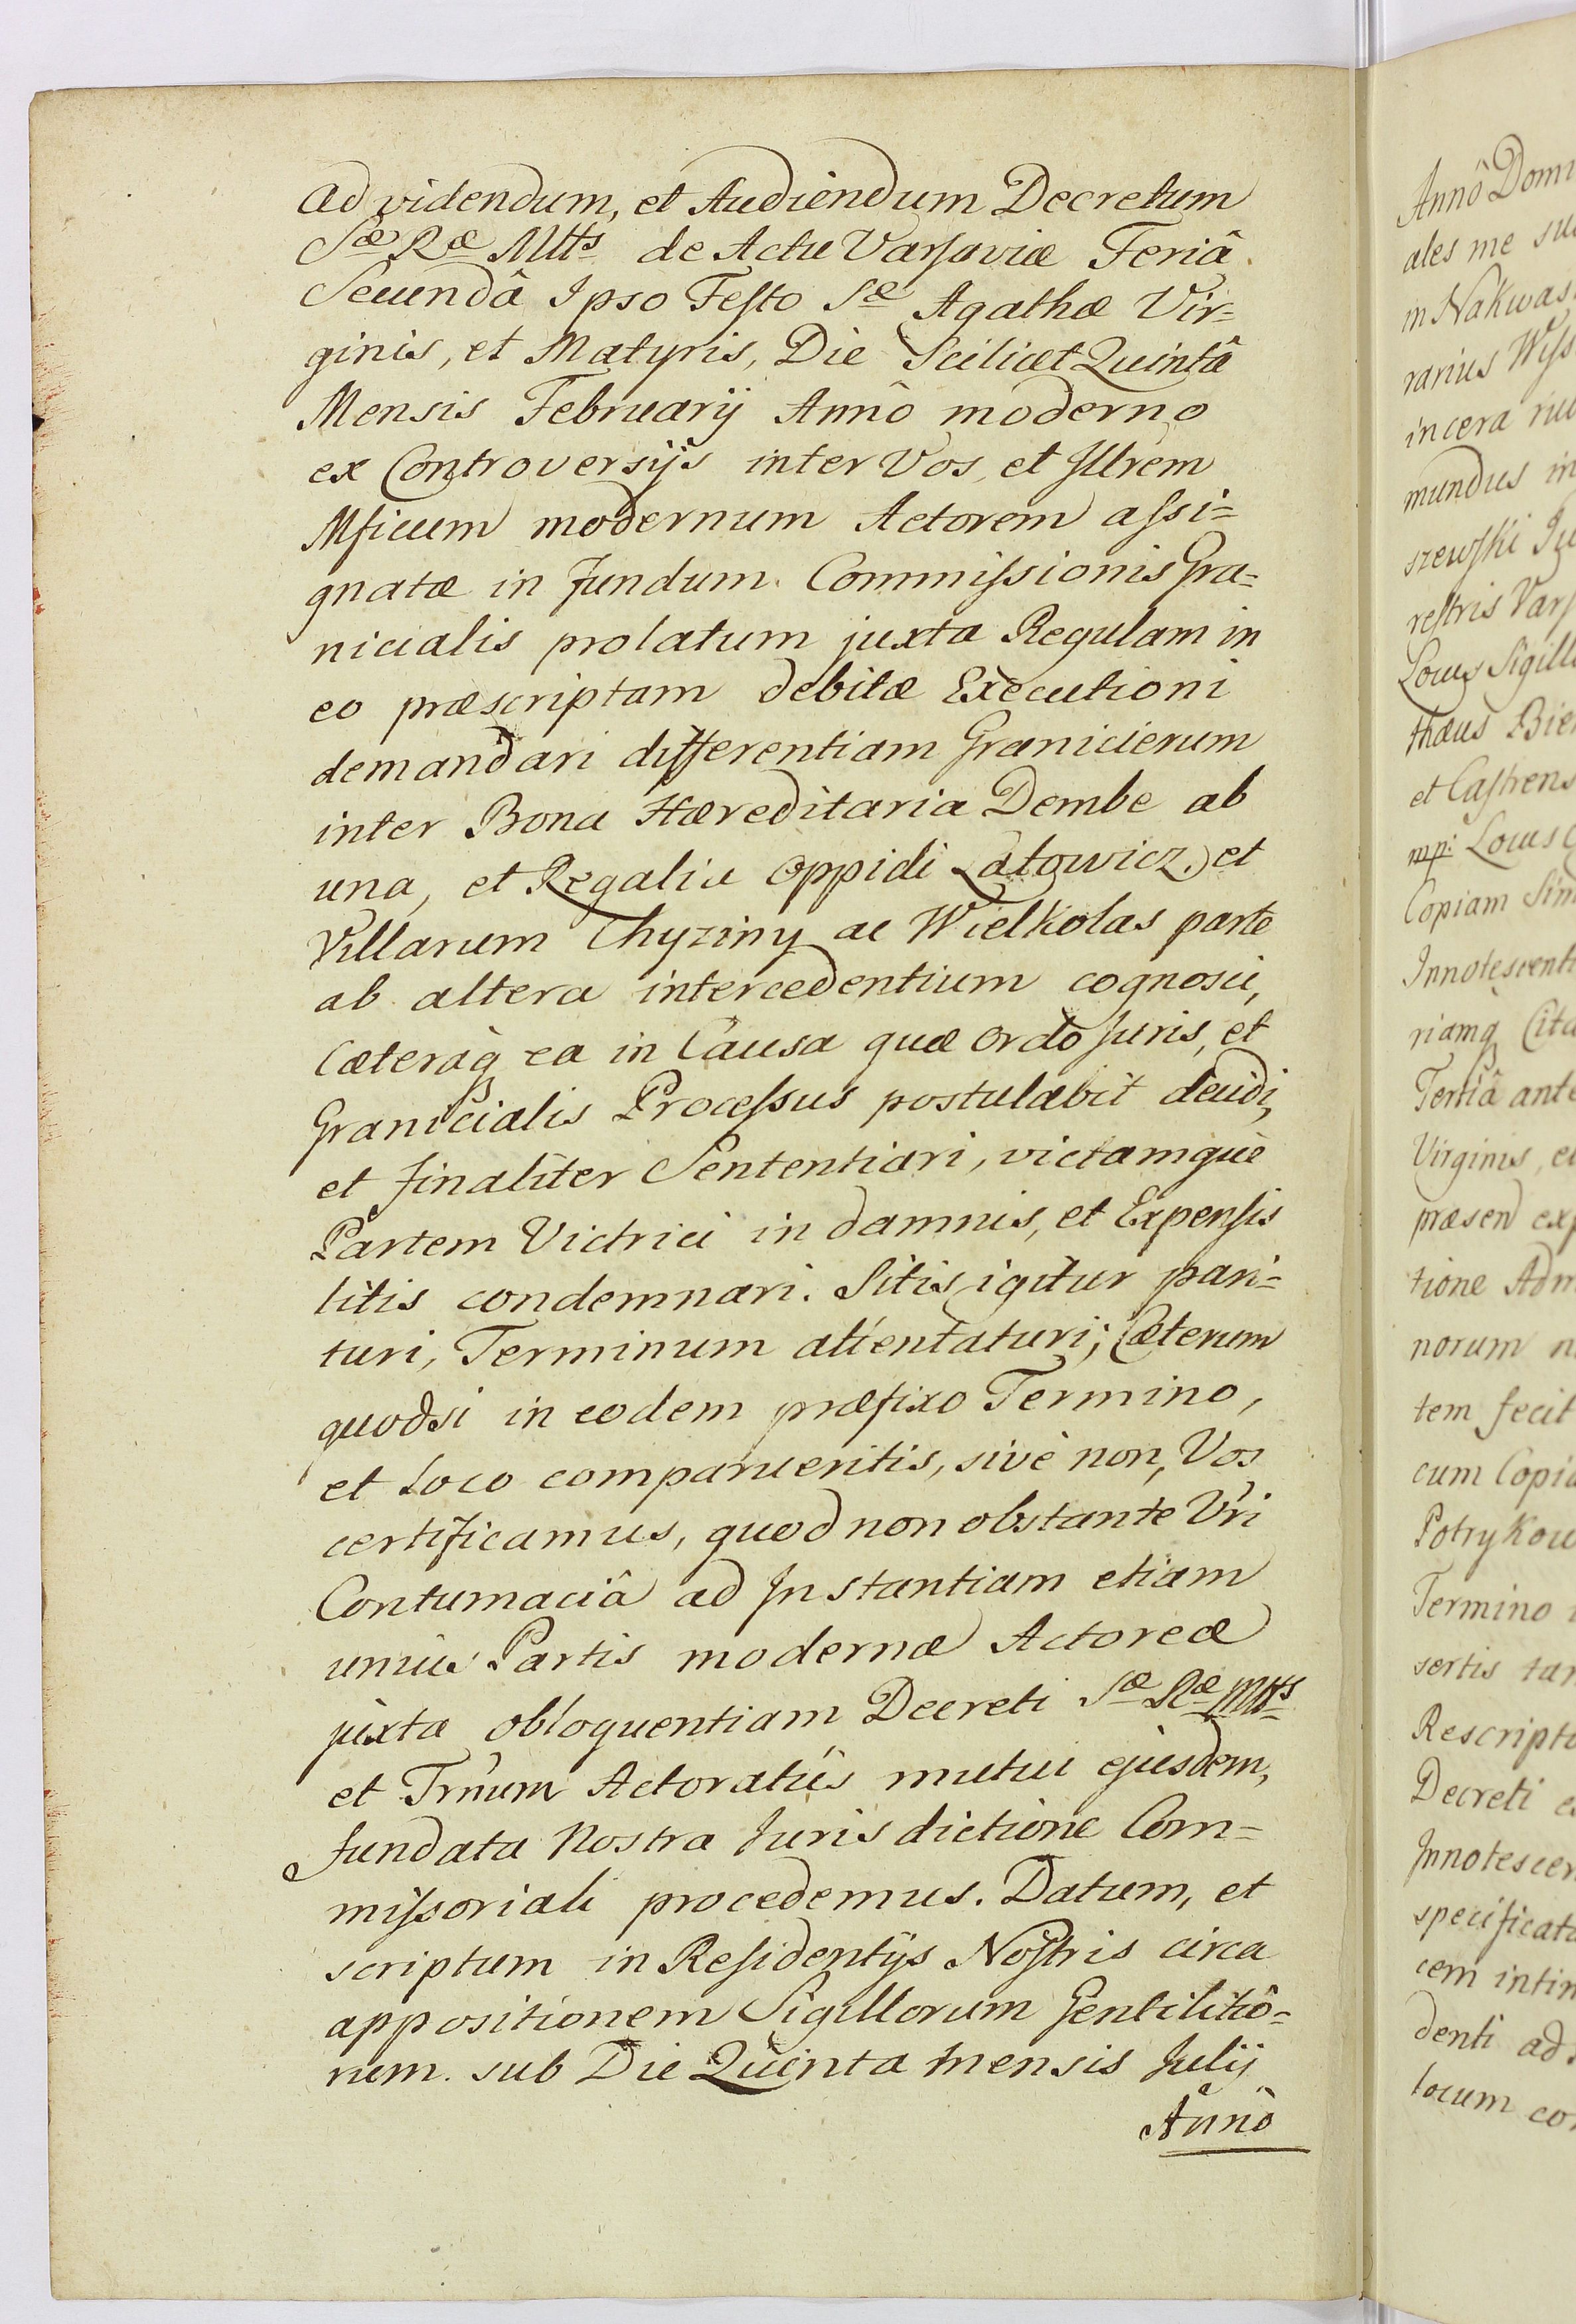 Ad videndum, et Audiendum Decretum
Sæ Ræ Mtts de Actu Varsaviæ Feriâ
Secundâ Ipso Festo Sæ Agathæ Vir=
ginis, et Matyris, Die Scilicet Quintâ
Mensis Februarij Annô moderno
ex Controversijs inter Vos, et Jllrem
Mficum modernum Actorem assi=
gnatæ in fundum Commissionis Gra=
nicialis prolatum juxta Regulam in
eo præscriptam debitæ Executioni
demandari differentiam Granicierum
inter Bona Hæreditaria Dembe ab
una, et Regalia Oppidi Latowicz, et
Villarum Chyziny ac Wielkolas parte
ab altera intercedentium cognosci,
Cæteraq ea in Causa quæ Ordo Juris, et
Granicialis Processus postulabit decidi,
et finaliter Sententiari, victamquè
Partem Victrici in damnis, et Expensis
litis condemnari. Sitis igitur pari=
turi, Terminum attentaturi; Cæterum
quodsi in eodem præfixo Termino,
et Loco comparueritis, sivè non, Vos
certificamus, quod non obstante Vri
Contumaciâ ad Jnstantiam etiam
unius Partis modernæ Actoreæ
juxta obloquentiam Decreti Sæ Ræ Mtts
et Trnum Actoratûs mutui ejusdem,
fundata Nostra Juris dictione Com=
missoriali procedemus. Datum, et
scriptum in Residentijs Nostris circa
appositionem Sigillorum Gentilitiô=
rum. sub Die Quinta Mensis Julij
Annô
Annô Domi
ales me su
in Nakwas
rarius Wiss
in cera ru
mundus in
szewski Ju
restris Vars
Locus Sigill
thæus Bie
et Castrens
mp: Locus
Copiam Sim
Innotescent
riamq Cita
Tertiâ ante
Virginis, e
præsend exp
tione Adm
norum n
tem fecit
cum Copia
Potrykow
Termino
sertis tan
Rescripto
Decreti e
Jnnotescen
specificat
cem intim
denti ad
locum co